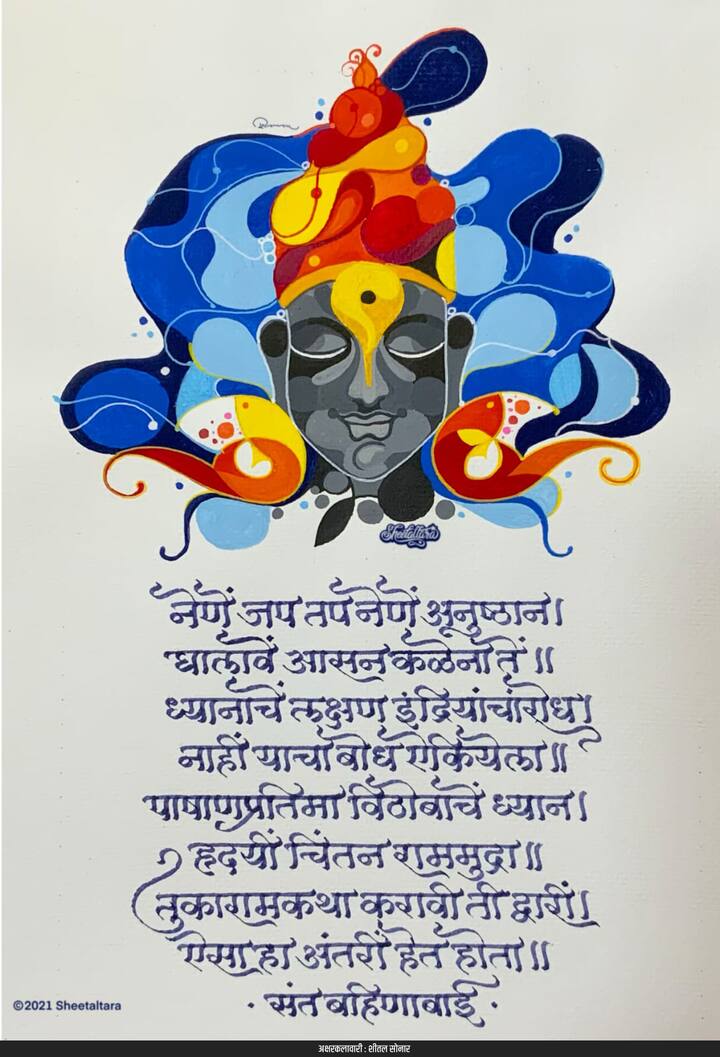 Sheetaltara
नेणें जप तप नेणें अनुष्ठान।
घालावें आसन कळेना तें॥
ध्यानाचें लक्षण इंद्रियांचा रोध।
नाहीं याचा बोध ऐकियेला॥
पाषाणप्रतिमा विठोबाचें ध्यान।
हृदयीं चिंतन राममुद्रा॥
तुकारामकथा करावी ती द्वारीं।
ऐसा हा अंतरीं हेत होता॥
· संत बहिणाबाई ·
©2021 Sheetaltara
अक्षरकलावारी : शीतल सोनार